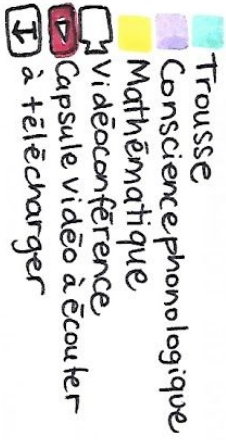 Trousse
Conscience phonologique
Mathématique
Vidéoconférence
Capsule vidéo à écouter
à télécharger